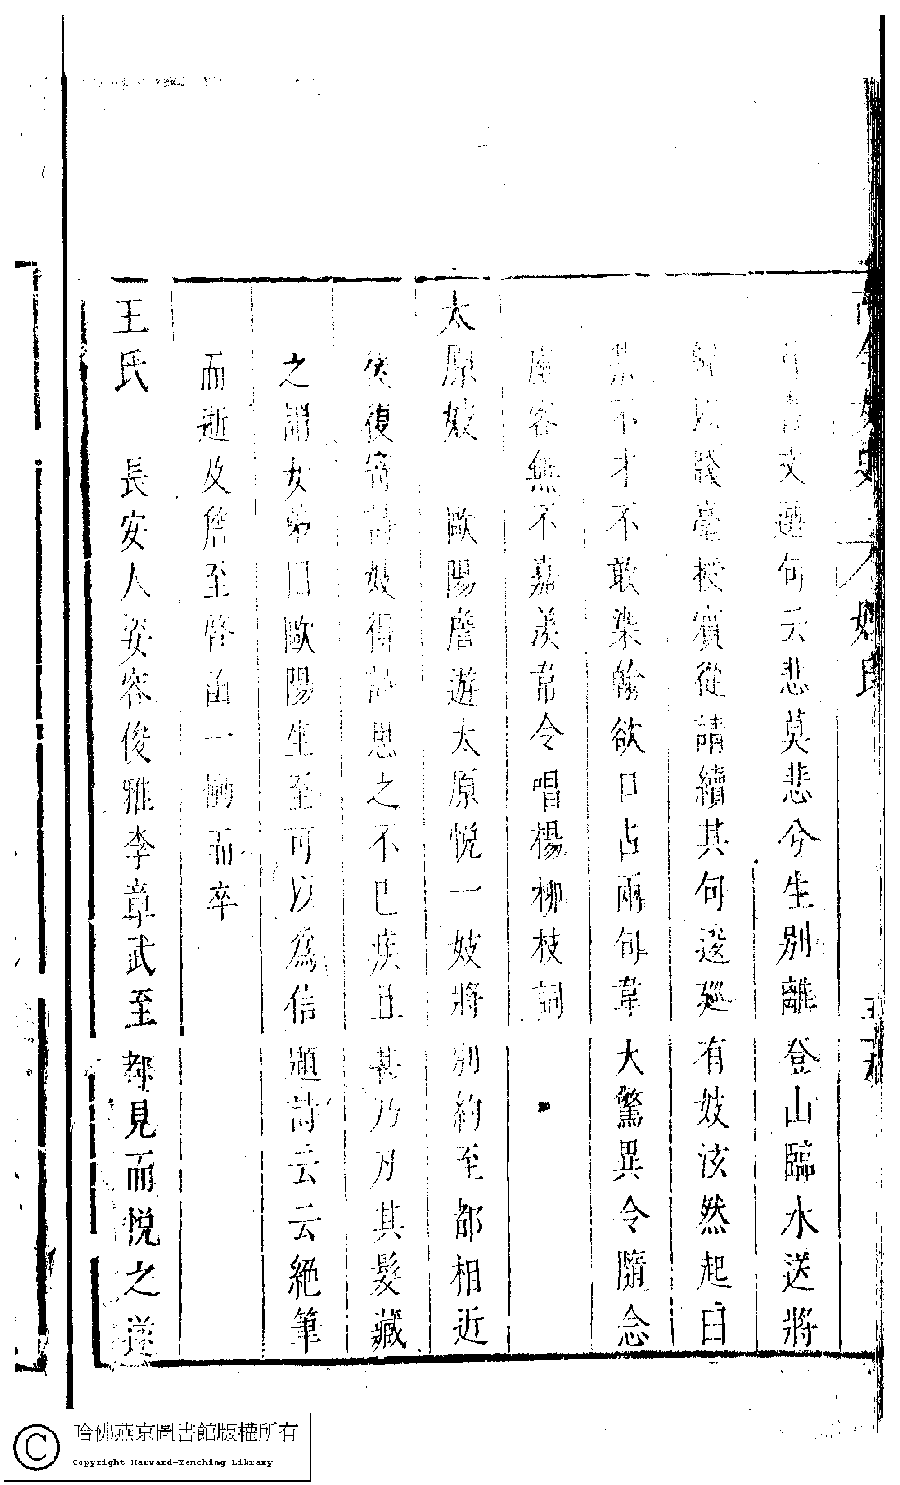 古今女史 姓氏
首文選句云悲莫悲兮生別離登山臨水送將
歸以牋毫授賓從請續其句逡巡有妓泫然起曰
某不才不敢染翰欲口占兩句韋大驚異令隨念
座客無不嘉羨韋令唱楊柳枝詞
太原妓 歐陽詹遊太原悅一妓將別約至都相近
後復寄詩妓得詩思之不已疾且甚乃刃其髮藏
之謂女弟曰歐陽生至可以為信題詩云云絕筆
而逝及詹至啓函一慟而卒
王氏 長安人姿容俊雅李章武至都見而悅之遂
哈佛燕京圖書館版權所有
Copyright Harvard-Yenching Library